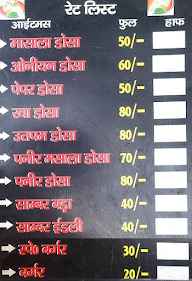 रेट लिस्ट
आईटमस फुल हाफ
मासाला डोसा 50/-
ओनीयन डोसा 60/-
पेपर डोसा 50/-
रवा डोसा 80/-
उतपम डोसा 80/-
पनीर मसाला डोसा 70/-
पनीर डोसा 80/-
साम्बर बड़ा 40/-
साम्बर ईडली 40/-
स्पे० बर्गर 30/-
बर्गर 20/-